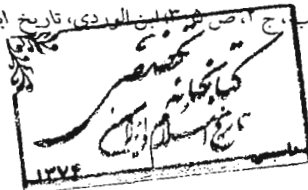 ابن الوردی، تاریخ
کتابخانه تخصصی
تاریخ اسلام و ایران
۱۳۷۴